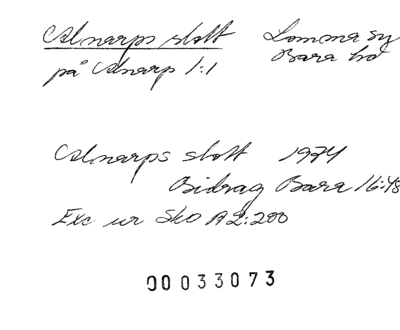 Alnarps slott Lomma sn
på Alnarp 1:1 Bara hd
Alnarps slott 1974
Bidrag Bara 16:48
Exc ur Sko A2:200
00033073